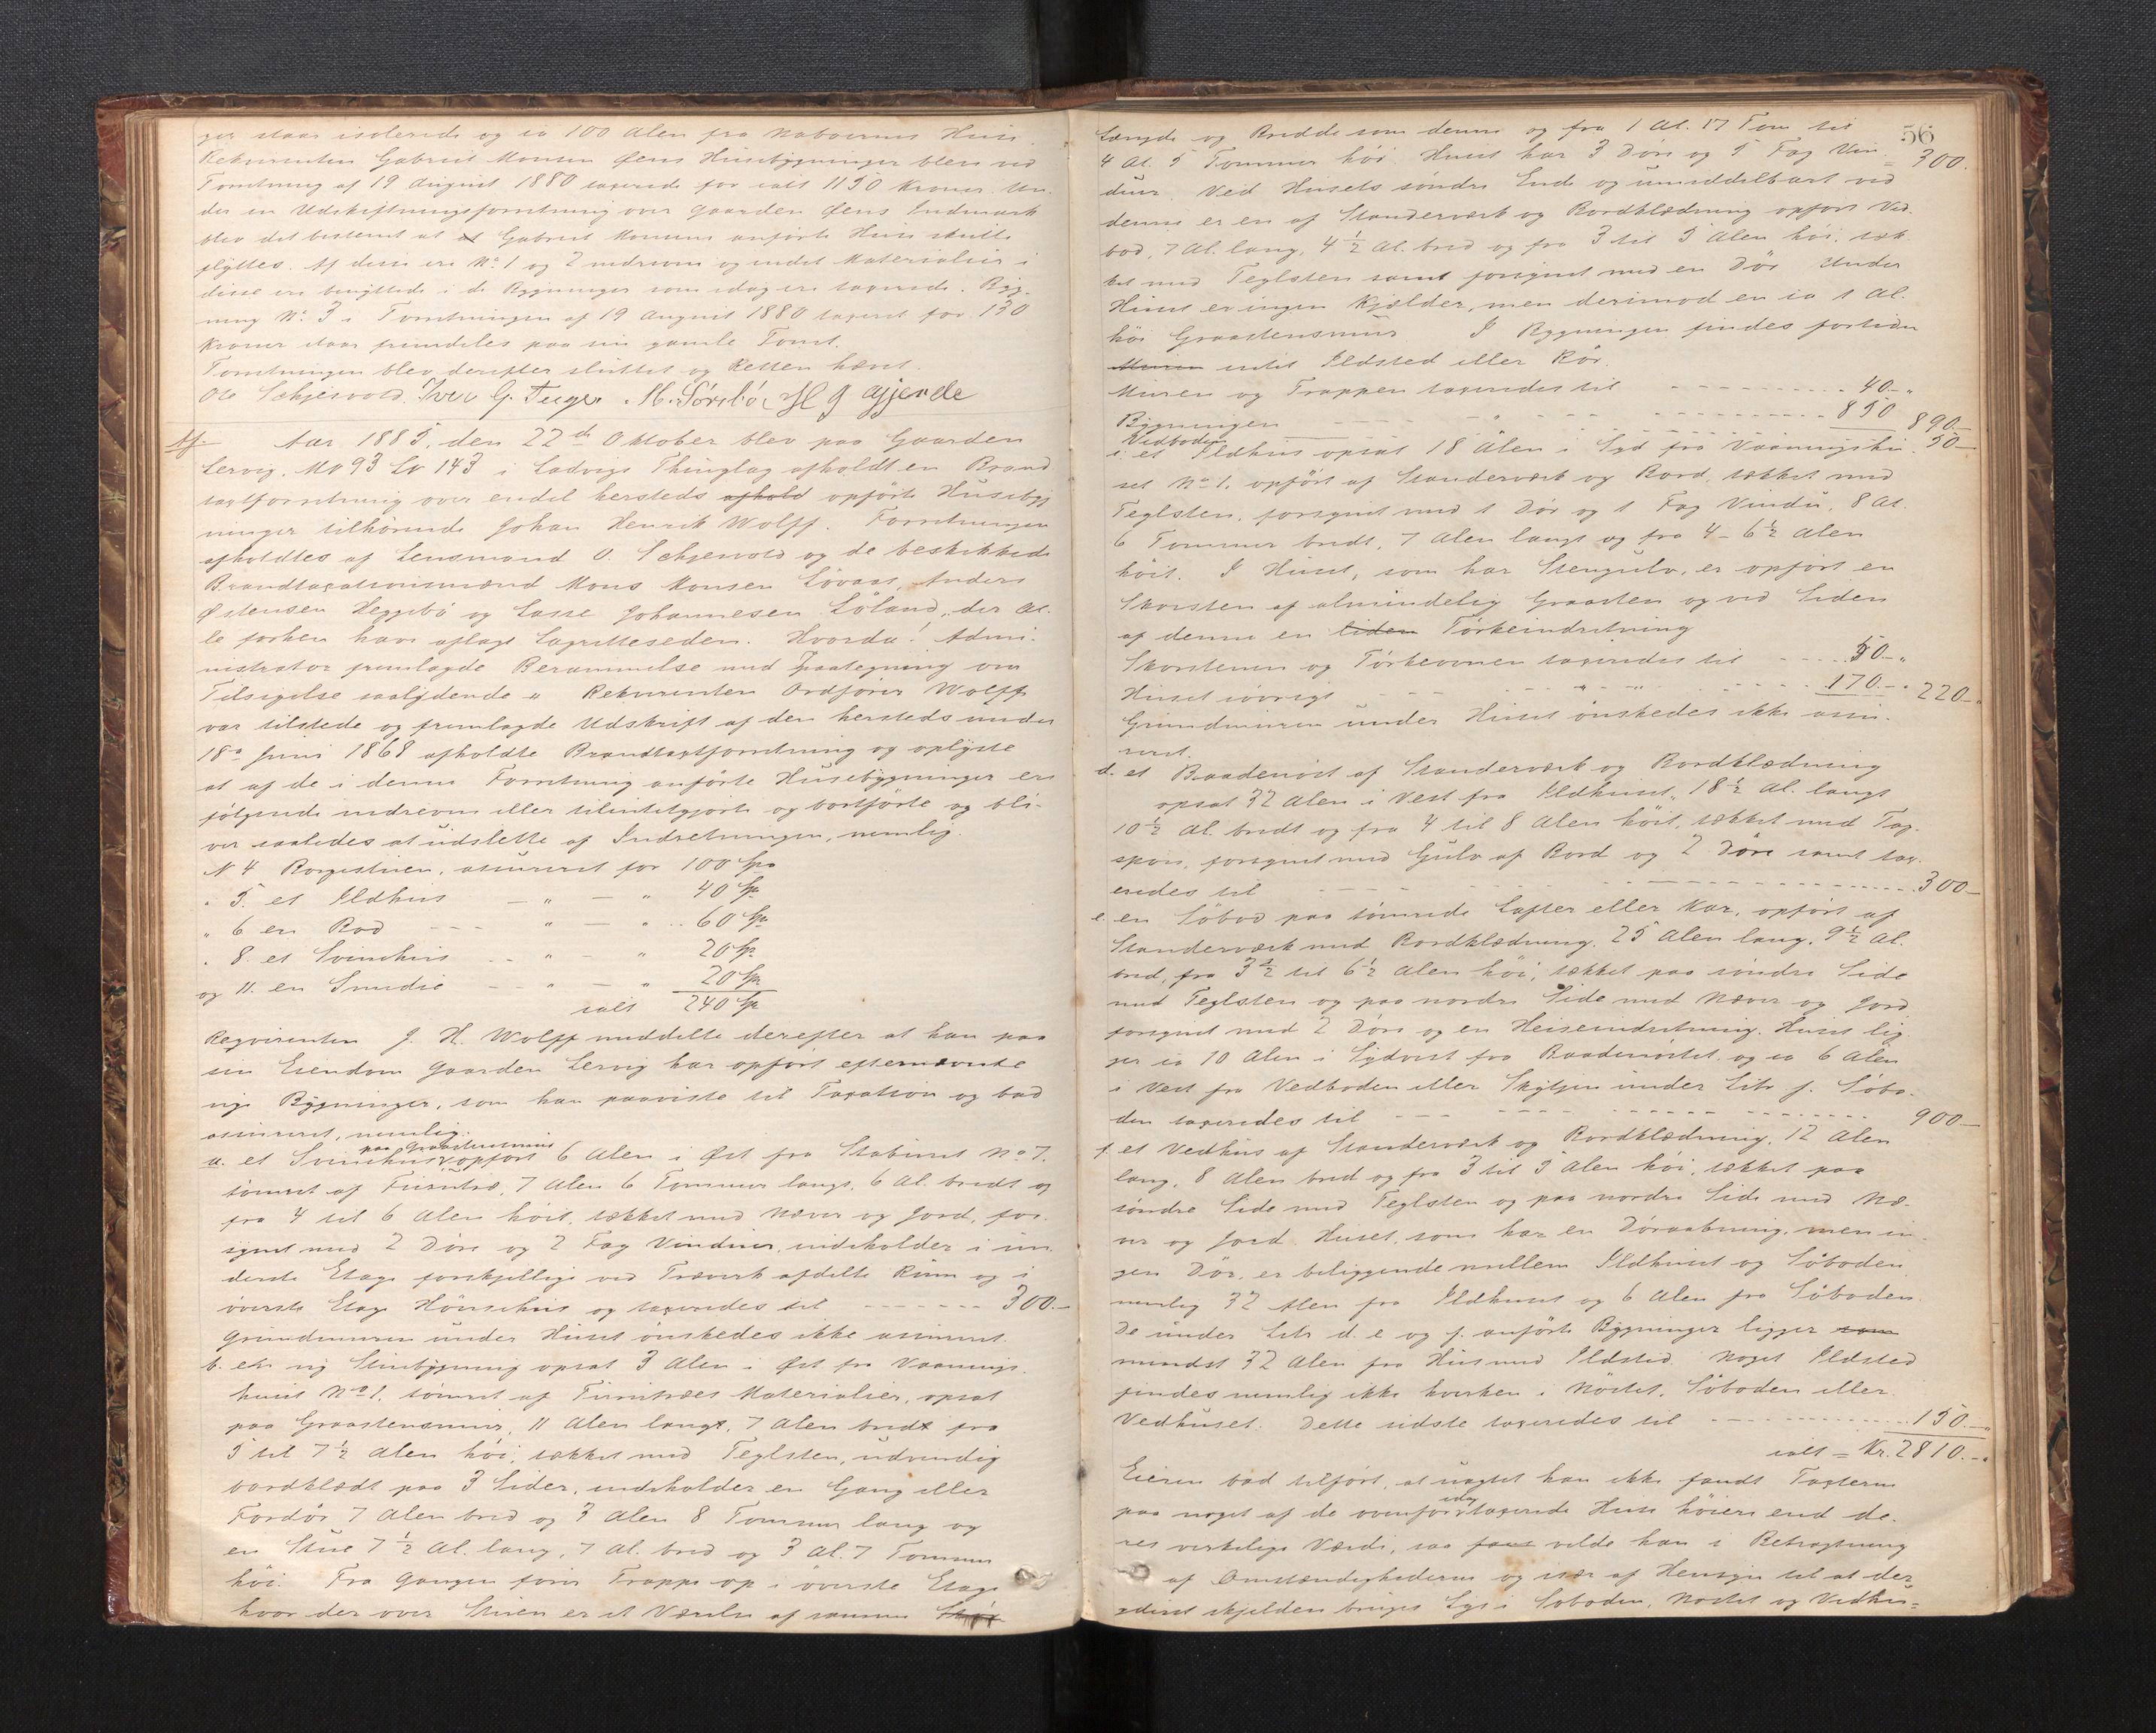 ger staar isolerede og ca 100 Alen fra Naboernes Huse.
Rekvirenten Gabriel Monsen Øens Husebygninger blev ved
Forretning af 19 August 1880 taxerede for ialt 1150 Kroner. Un-
der en Udskiftningsforretning over Gaarden Øens Indmark
blev det bestemt at Gabriel Monsens anførte Huse skulle
flyttes. Af disse ere No. 1 og 2 nedrevne og endel Materialier i
disse ere benyttede i de Bygninger som idag ere taxerede. Byg-
ning No. 3 i Forretningen af 19 August 1880 taxeret for 130
Kroner staar fremdeles paa sin gamle Tomt.
Forretningen blev derefter sluttet og Retten hævet.
Ole Schjesvold. Iver G. M. Sørebø H G Gjerde
Af. Aar 1885, den 22de Oktober blev paa Gaarden
Lervig, M No 93 Lo 143 i Ladvigs Thinglag afholdt en Brand
taxtforretning over endel hersteds afhold opførte Husebyg
ninger tilhørende Johan Henrik Wolff. Forretningen
afholdtes af Lensmand O. Schjesvold og de beskikkede
Brandtaxationsmænd Mons Monsen Løvaas, Anders
Østensen Heggebø og Lasse Johannesen Løland, der al-
le forhen have aflagt Lagretteseden. Hvorda! Admi-
nistrator fremlagde Berammelse med Paategning om
Tilsigelse saalydende " Rekvirenten Ordfører Wolff
var tilstede og fremlagde Udskrift af den hersteds under
18de Juni 1868 afholdte Brandtaxtforretning og oplyste
at af de i denne Forretning anførte Husebygninger ere
følgende nedrevne eller tilintetgjorte og bortførte og bli-
ver saaledes at udslette af Indretningen, nemlig.
N 4 Borgestuen, assureret for 100 Sp.
" 5. et Ildhus — " — " 40 Sp.
" 6 en Bod — — " — " .. 60 Sp.
" 8. et Svinehus .. " — " 20 Sp.
og 11. en Smedie — " — " 20 Sp.
ialt 240 Sp.
Reqvirenten J. H. Wolff meddelte derefter at han paa
sin Eiendom Gaarden Lervig har opført efternævnte
nye Bygninger, som han paaviste til Taxation og bad
assureret, nemlig:
paa Graastensmur
a. et Svinehus opført 6 Alen i Øst fra Stabburet No 7.
tømret af Furutræ, 7 Alen 6 Tommer langt, 6 Al. bredt og
fra 4 til 6 Alen høit, tækket med Næver og Jord, for-
synet med 2 Døre og 2 Fag Vinduer, indeholder i un-
derste Etage forskjellige ved Træverk afdelte Rum og i
øverste Etage Hønsehus og taxeredes til - - - - - - 300.—
Grundmuren under Huset ønskedes ikke assureret.
b. en ny Stuebygning opsat 3 Alen i Øst fra Vaanings-
huset No 1, tømret af Furutræes Materialier, opsat
paa Graastensmur, 11 Alen langt, 7 Alen bredt fra
5 til 7 1/2 Alen høi, tækket med Teglsten, udvendig
bordklædt paa 3 Sider, indeholder en Gang eller
Fordør 7 Alen bred og 3 Alen 8 Tommer lang og
en Stue 7 1/2 Al. lang, 7 Al. bred og 3 Al. 7 Tommer
høi. Fra Gangen fører Trappe op i øverste Etage
hvor der over Stuen er et Værelse af samme
56
Længde og Bredde som denne og fra 1 Al. 17 Tom til
4 Al. 5 Tommer høi. Huset har 3 Døre og 5 Fag Vin= 300.
duer. Ved Husets søndre Ende og umiddelbart ved
denne er en af Standerværk og Bordklædning opført Ved-
bod, 7 Al. lang, 4 1/2 Al. bred og fra 3 til 5 Alen høi, tæk-
ket med Teglsten samt forsynet med en Dør. Under
Huset er ingen Kjælder, men derimod en ca 1 Al.
høi Graastensmur I Bygningen findes fortiden
Muren intet Ildsted eller Rør.
Muren og Trappen taxeredes til - - - - - - - 40.- "
Bygningen - - - - " - - - - - - 850 890.—
Vedboden 50—
c. et Ildhus opsat 18 Alen i Syd fra Vaaningshu-
set No 1, opført af Standerværk og Bord, tækket med
Teglsten, forsynet med 1 Dør og 1 Fag Vindu, 8 Al.
6 Tommer bredt, 7 Alen langt og fra 4 - 6 1/2 Alen
høit. I Huset, som har Stengulv, er opført en
Skorsten af almindelig Graasten og ved Siden
af denne en liden Tørkeindretning
Skorstenen og Tørkeovnen taxeredes til - - - - 50.- "
Huset iøvrigt - - - - - " - " - - - - 170.- " 220.- "
Grundmuren under Huset ønskedes ikke assu-
reret.
d. et Baadenøst af Standerværk og Bordklædning
opsat 32 Alen i Vest fra Ildhuset, 18 1/2 Al. langt
10 1/2 Al. bredt og fra 4 til 8 Alen høit, tækket med Tag-
spon, forsynet med Gulv af Bord og 2 Døre samt tax-
eredes til - - - - - - - - - - - - 300—
e. en Søbod paa tømrede Lafter eller Kar, opført af
Standerværk med Bordklædning. 25 Alen lang, 9 1/2 Al.
bred, fra 3 1/2 til 6 1/2 Alen høi, tækket paa søndre Side
med Teglsten og paa nordre Side med Næver og Jord
forsynet med 2 Døre og en Heiseindretning. Huset lig-
ger ca 10 Alen i Sydvest fra Baadenøstet og ca 6 Alen
i Vest fra Vedboden eller Skytjen under Litr f. Søbo-
den taxeredes til - - - - - - - - - - 900—
f. et Vedhus af Standerværk og Bordklædning, 12 Alen
lang, 8 Alen bred og fra 3 til 5 Alen høi, tækket paa
søndre Side med Teglsten og paa nordre Side med Næ-
ver og Jord. Huset, som har en Døraabning, men in-
gen Dør, er beliggende mellem Ildhuset og Søboden
nemlig 32 Alen fra Ildhuset og 6 Alen fra Søboden.
De under Litr d. e og f. anførte Bygninger ligger som
mindst 32 Alen fra Hus med Ildsted. Noget Ildsted
findes nemlig ikke hverken i Nøstet, Søboden eller
Vedhuset. Dette sidste taxeredes til - - - - - - - 150.- "
ialt = Kr. 2810.- "
Eieren bad tilført, at uagtet han ikke fandt Taxterne
paa noget af de ovenfor idag taxerede Huse høiere end de-
res virkelige Værdi, saa vilde han i Betragtning
af Omstændighederne og især af Hensyn til at der
yderst skjelden bruges Lys i Søboden, Nøstet og Vedhu=